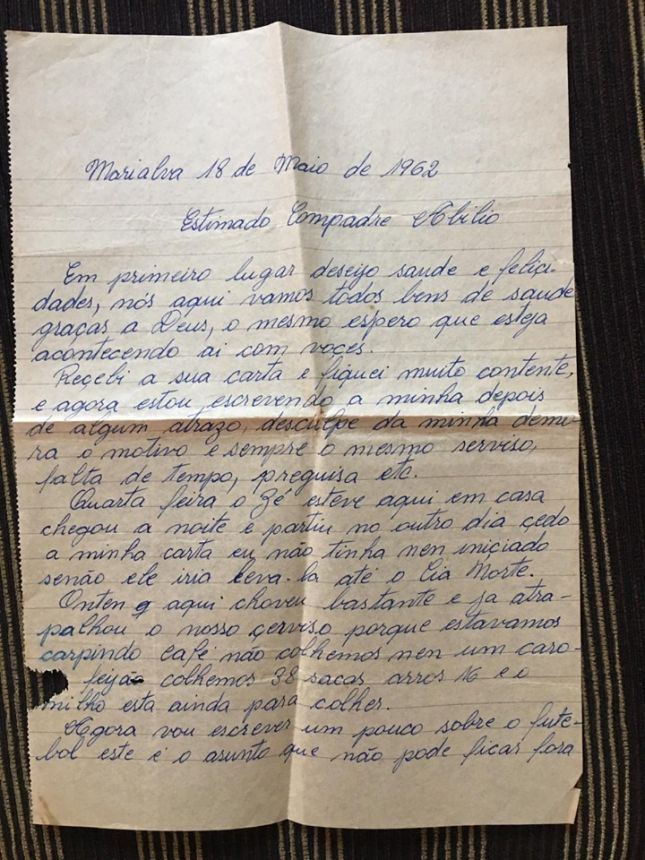 Marialva 18 de Maio de 1962
Estimado Compadre Abilio
Em primeiro lugar deseijo saude e felici-
dades, nós aqui vamos todos bens de saude
graças a Deus, o mesmo espero que esteja
acontecendo ai com voçes.
Reçebi a sua carta e fiquei muito contente,
e agora estou escrevendo a minha depois
de algum atrazo, desculpe da minha demo-
ra o motivo e sempre o mesmo serviso,
falta de tempo, preguisa etc.
Quarta feira o Zé esteve aqui em casa
chegou a noite e partiu no outro dia çedo
a minha carta eu não tinha nen iniciado
senão ele iria leva-la até o Cia Norte.
Onten aqui choveu bastante e ja atra-
palhou o nosso çerviso porque estavamos
carpindo café não colhemos nen um caro-
feijão colhemos 38 sacas arros 16 e o
milho esta ainda para colher.
Agora vou escrever um pouco sobre o fute-
bol este é o asunto que não pode ficar fora